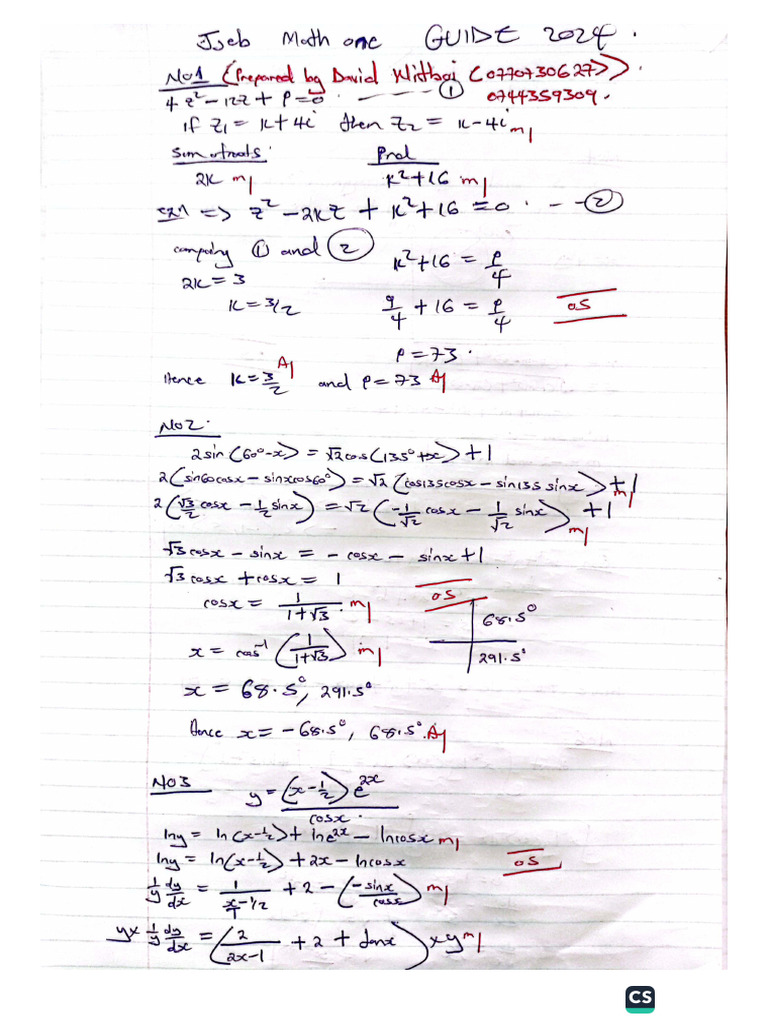 Jjeb Math one GUIDE 2024.
No1 (Prepared by David Withboi (0770730627)).
4z² – 12z + P = 0 ------ ① 0744359309.
if z₁ = k + 4i then z₂ = k – 4i m1
Sum of roots: Prod
2k m1 k² + 16 m1
eqn => z² – 2kz + k² + 16 = 0 . - - ②
comparing ① and ②
k² + 16 = P/4
2k = 3
k = 3/2 9/4 + 16 = P/4 05
P = 73.
Hence k = 3/2 A1 and P = 73 A1
No2.
2sin(60°-x) = √2cos(135°+x) + 1
2(sin60cosx – sinxcos60°) = √2(cos135cosx – sin135sinx) + 1 m1
2(√3/2 cosx – 1/2 sinx) = √2(-1/√2 cosx – 1/√2 sinx) + 1 m1
√3cosx – sinx = – cosx – sinx + 1
√3cosx + cosx = 1
cosx = 1/(1+√3) . m1 05
68.5°
x = cos⁻¹(1/(1+√3)) m1 291.5°
x = 68.5°, 291.5°
Hence x = –68.5°, 68.5°. A1
No3 y = (x-1/2)e²ˣ/cosx.
lny = ln(x-1/2) + lne²ˣ – lncosx m1
lny = ln(x-1/2) + 2x – lncosx 05
1/y dy/dx = 1/(x/1 - 1/2) + 2 – (-sinx/cosx) m1
y x 1/y dy/dx = (2/(2x-1) + 2 + tanx) x y m1
CS